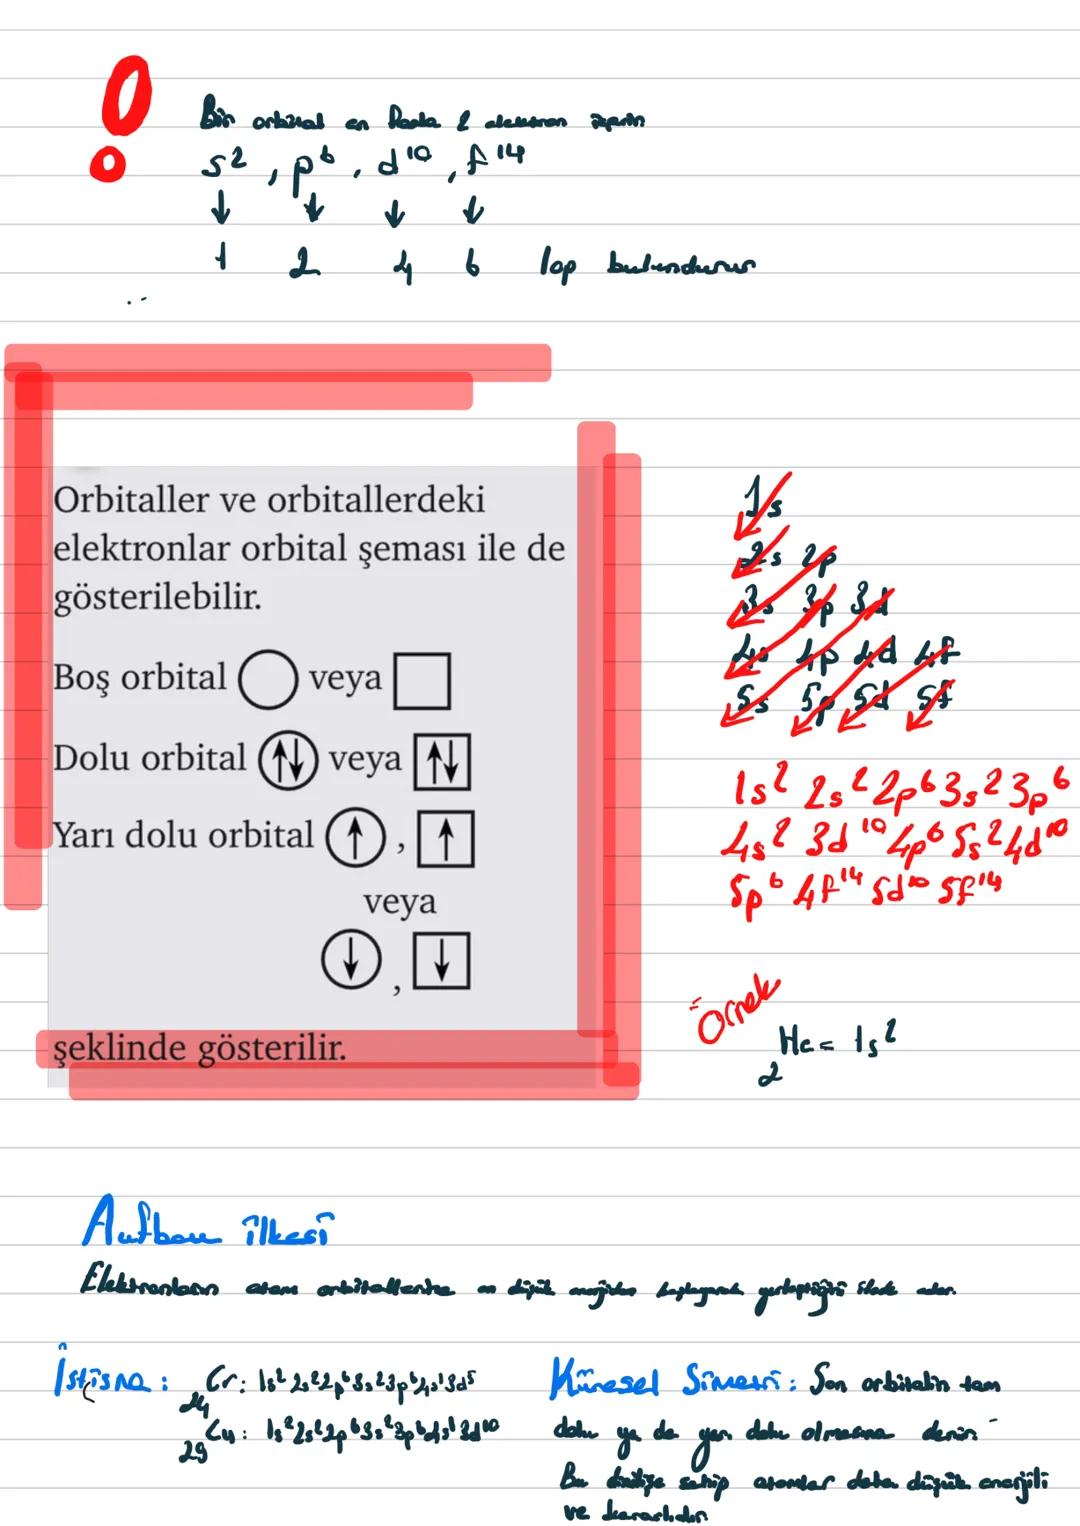 Bir orbital en fazla 2 elektron
s², p⁶, d¹⁰, f¹⁴
↓ ↓ ↓ ↓
1 2 4 6 lop bulundurur
Orbitaller ve orbitallerdeki
elektronlar orbital şeması ile de
gösterilebilir.
Boş orbital veya
Dolu orbital ↑↓ veya ↑↓
Yarı dolu orbital ↑ , ↑
veya
↓ , ↓
şeklinde gösterilir.
1s
2s 2p
3s 3p 3d
4s 4p 4d 4f
5s 5p 5d 5f
1s² 2s² 2p⁶ 3s² 3p⁶
4s² 3d¹⁰ 4p⁶ 5s² 4d¹⁰
5p⁶ 4f¹⁴ 5d¹⁰ 5f¹⁴
Örnek
₂He = 1s²
Aufbau ilkesi
Elektronların atom orbitallerine en düşük enerjiden başlayarak yerleştiğini ifade eder.
İstisna: ₂₄Cr: 1s² 2s² 2p⁶ 3s² 3p⁶ 4s¹ 3d⁵
₂₉Cu: 1s² 2s² 2p⁶ 3s² 3p⁶ 4s¹ 3d¹⁰
Küresel Simetri: Son orbitalin tam
dolu ya da yarı dolu olmasına denir.
Bu sahip atomlar daha düşük enerjili
ve kararlıdır.